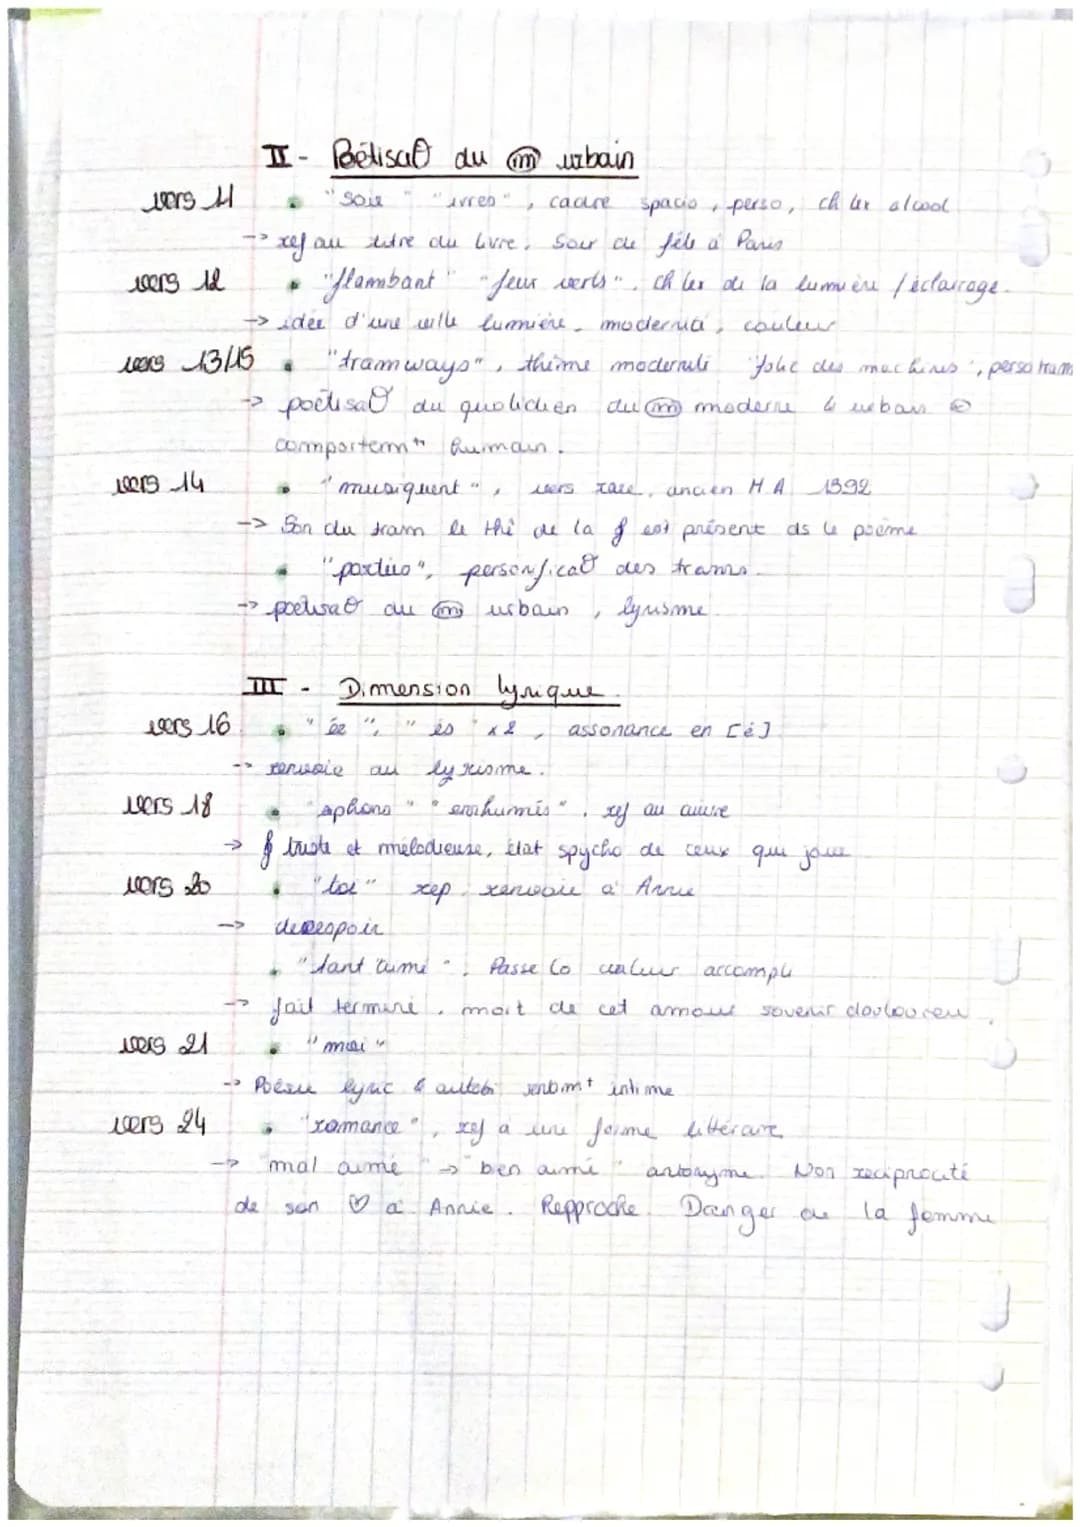 II - Poétisaθ du ⓜ urbain
vers 11 • "Soir" "ivres", cadre spacio, perso, ch lex alcool
-> ref au titre du livre. Soir de fête à Paris
vers 12 • "flambant" "feux verts". Ch lex de la lumière / éclairage.
-> idée d'une ville lumière, modernité, couleur
vers 13/15 • "tramways", thème modernité "folie des machines", perso tram
-> poétisaθ du quotidien du ⓜ moderne & urbain
comportemt humain.
vers 14 • "musiquent", vers rare, ancien 1392
-> Son du tram le thè de la est présent ds le poème
• "portées", personificaθ des trams.
-> poetisaθ du ⓜ urbain, lyrisme.
III - Dimension lyrique.
vers 16 • "és" x2, assonance en [é]
-> renvoie au lyrisme.
vers 18 • "aphons" "enrhumés". ref au cuivre
-> triste et mélodieuse, état spycho de ceux qui joue
vers 20 • "toi" rep. renvoie à Annie
-> desespoir
• "tant aimé". Passé Co valeur accompli
-> fait terminé, mort de cet amour sovenir douloureu.
vers 21 • "moi"
-> Poésie lyric & autobi sentimt intime
vers 24 • "romance", ref à une forme littéraire
-> "mal aimé" -> "bien aimé" antonyme. Non reciprocité
de son ♡ à Annie. Repproche. Danger de la femme